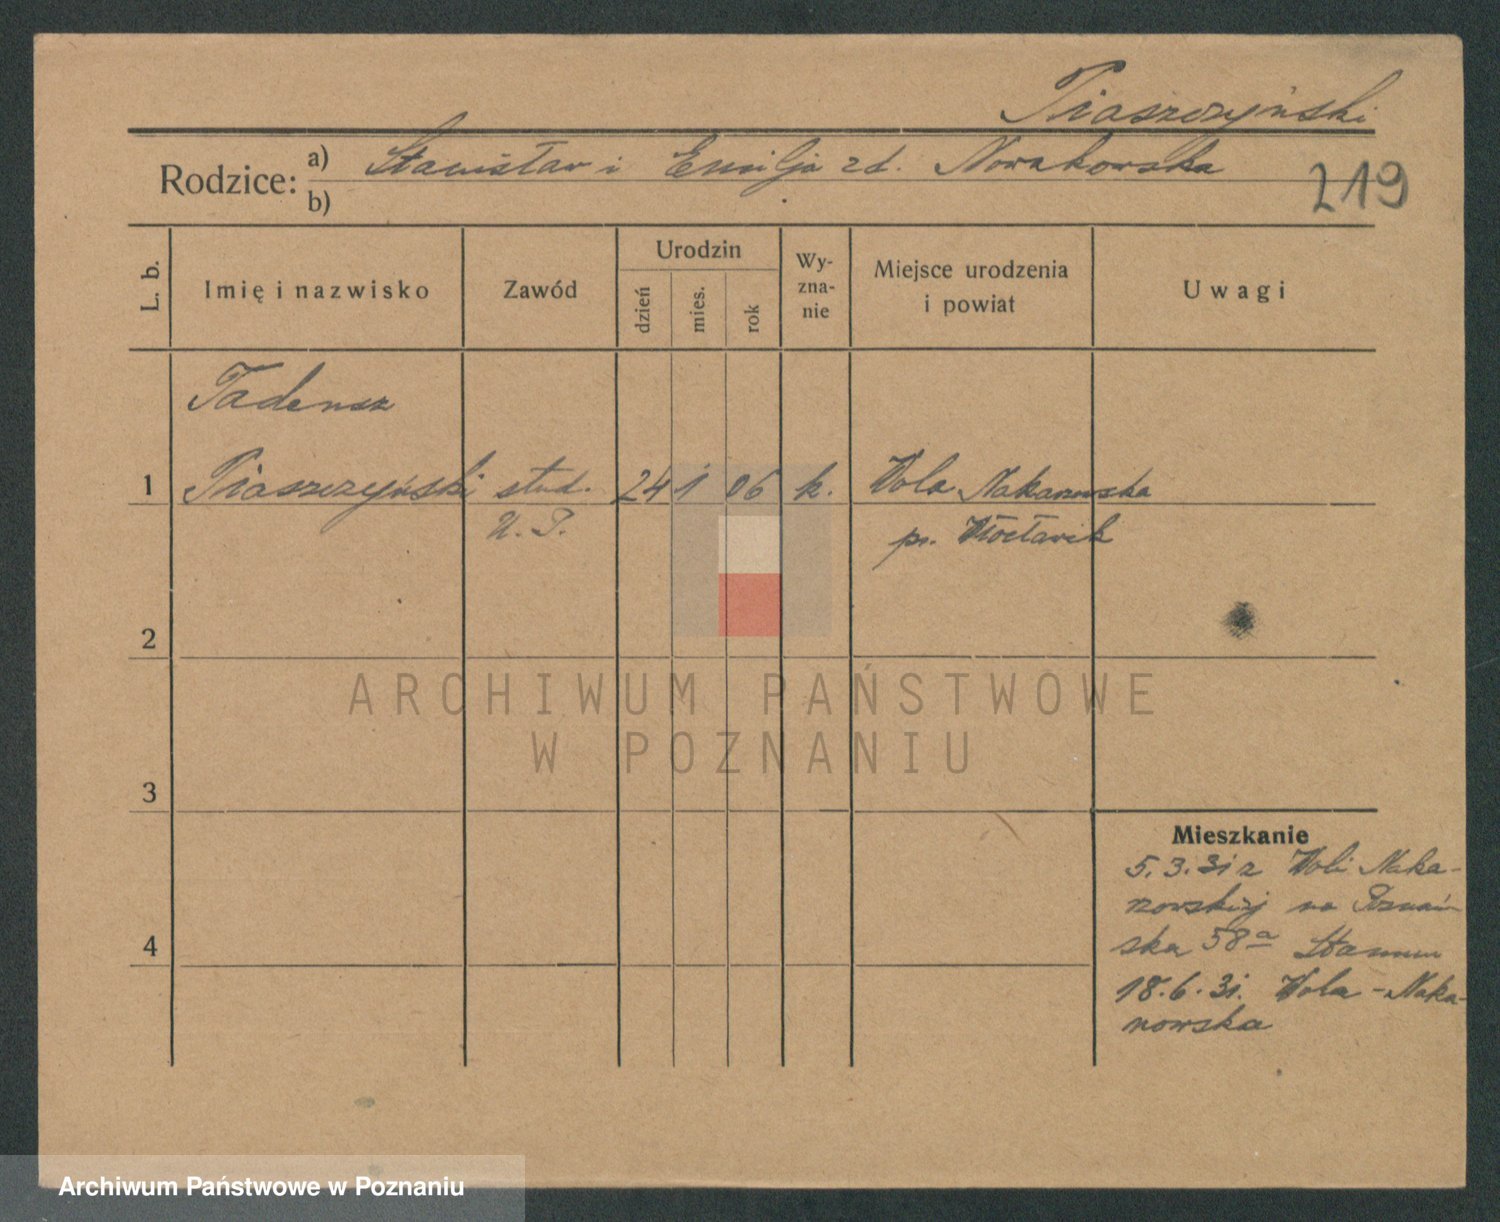 Piaszczyński
Rodzice: a) Stanisław i Emilja zd. Nowakowska
b)
219
L. b.
Imię i nazwisko
Zawód
Urodzin
dzień
mies.
rok
Wy-
zna-
nie
Miejsce urodzenia
i powiat
Uwagi
Tadeusz
1 Piaszczyński stud. 24 1 06 k. Wola Nakonowska
U. P. pow. Włocławek
2
ARCHIWUM PAŃSTWOWE
W POZNANIU
3
Mieszkanie
5. 3. 31 z Woli Nako-
nowskiej na Poznań-
4
ska 58a
18. 6. 31. Wola-Nako-
nowska
Archiwum Państwowe w Poznaniu